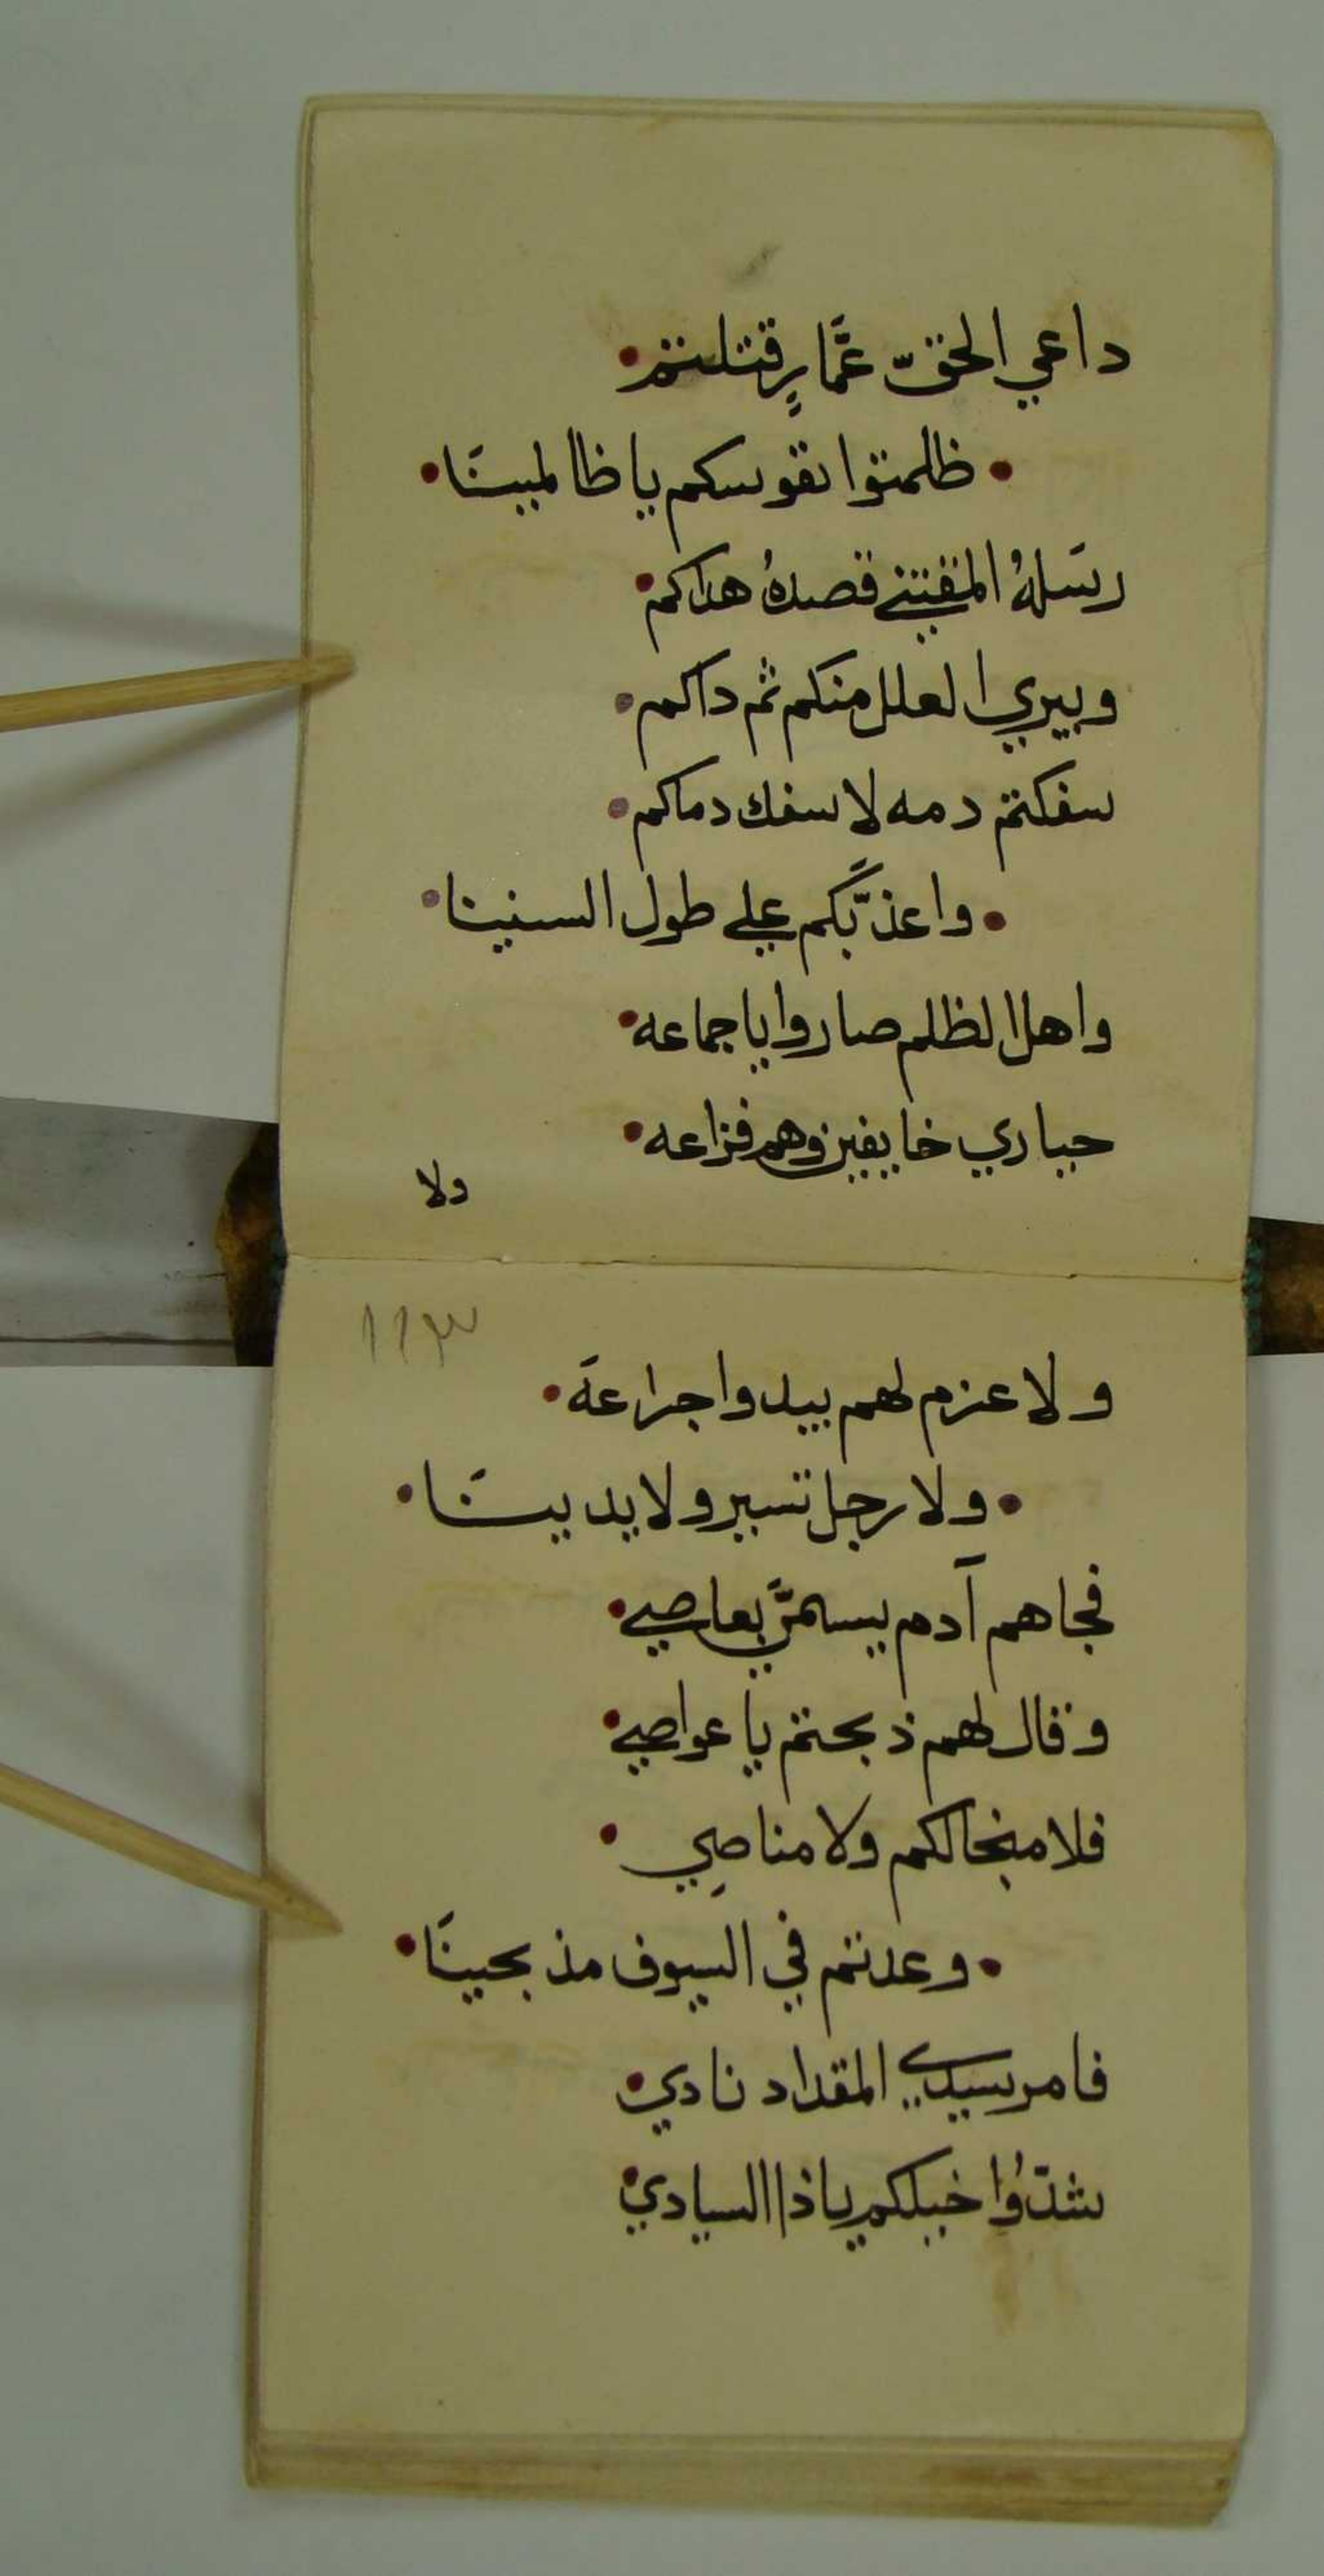 داعي الحقّ عمَّارٍ قتلتم •
• ظلمتوا نفوسكم يا ظالمينَا •
رسَلهُ المقتني قصدهُ هداكم •
ويبري العلل منكم ثم داكم •
سفكتم دمه لاسفك دماكم •
• واعذبّكم علي طول السنينا •
واهل الظلم صاروا يا جماعه •
حياري خايفين وهم فزاعه •
ولا
١١٣
ولا عزم لهم بيدوا جراعةَ •
• ولا رجل تسير ولا يدينَا •
فجاهم آدم يسما بعاصي •
وقال لهم ذبحتم يا عواصي •
فلا منجا لكم ولا مناصِي •
• وعدتم في السيوف مذبحينَا •
فامر سيدي المقداد نادي •
شدّوُا خيلكم يا ذا السيادي •